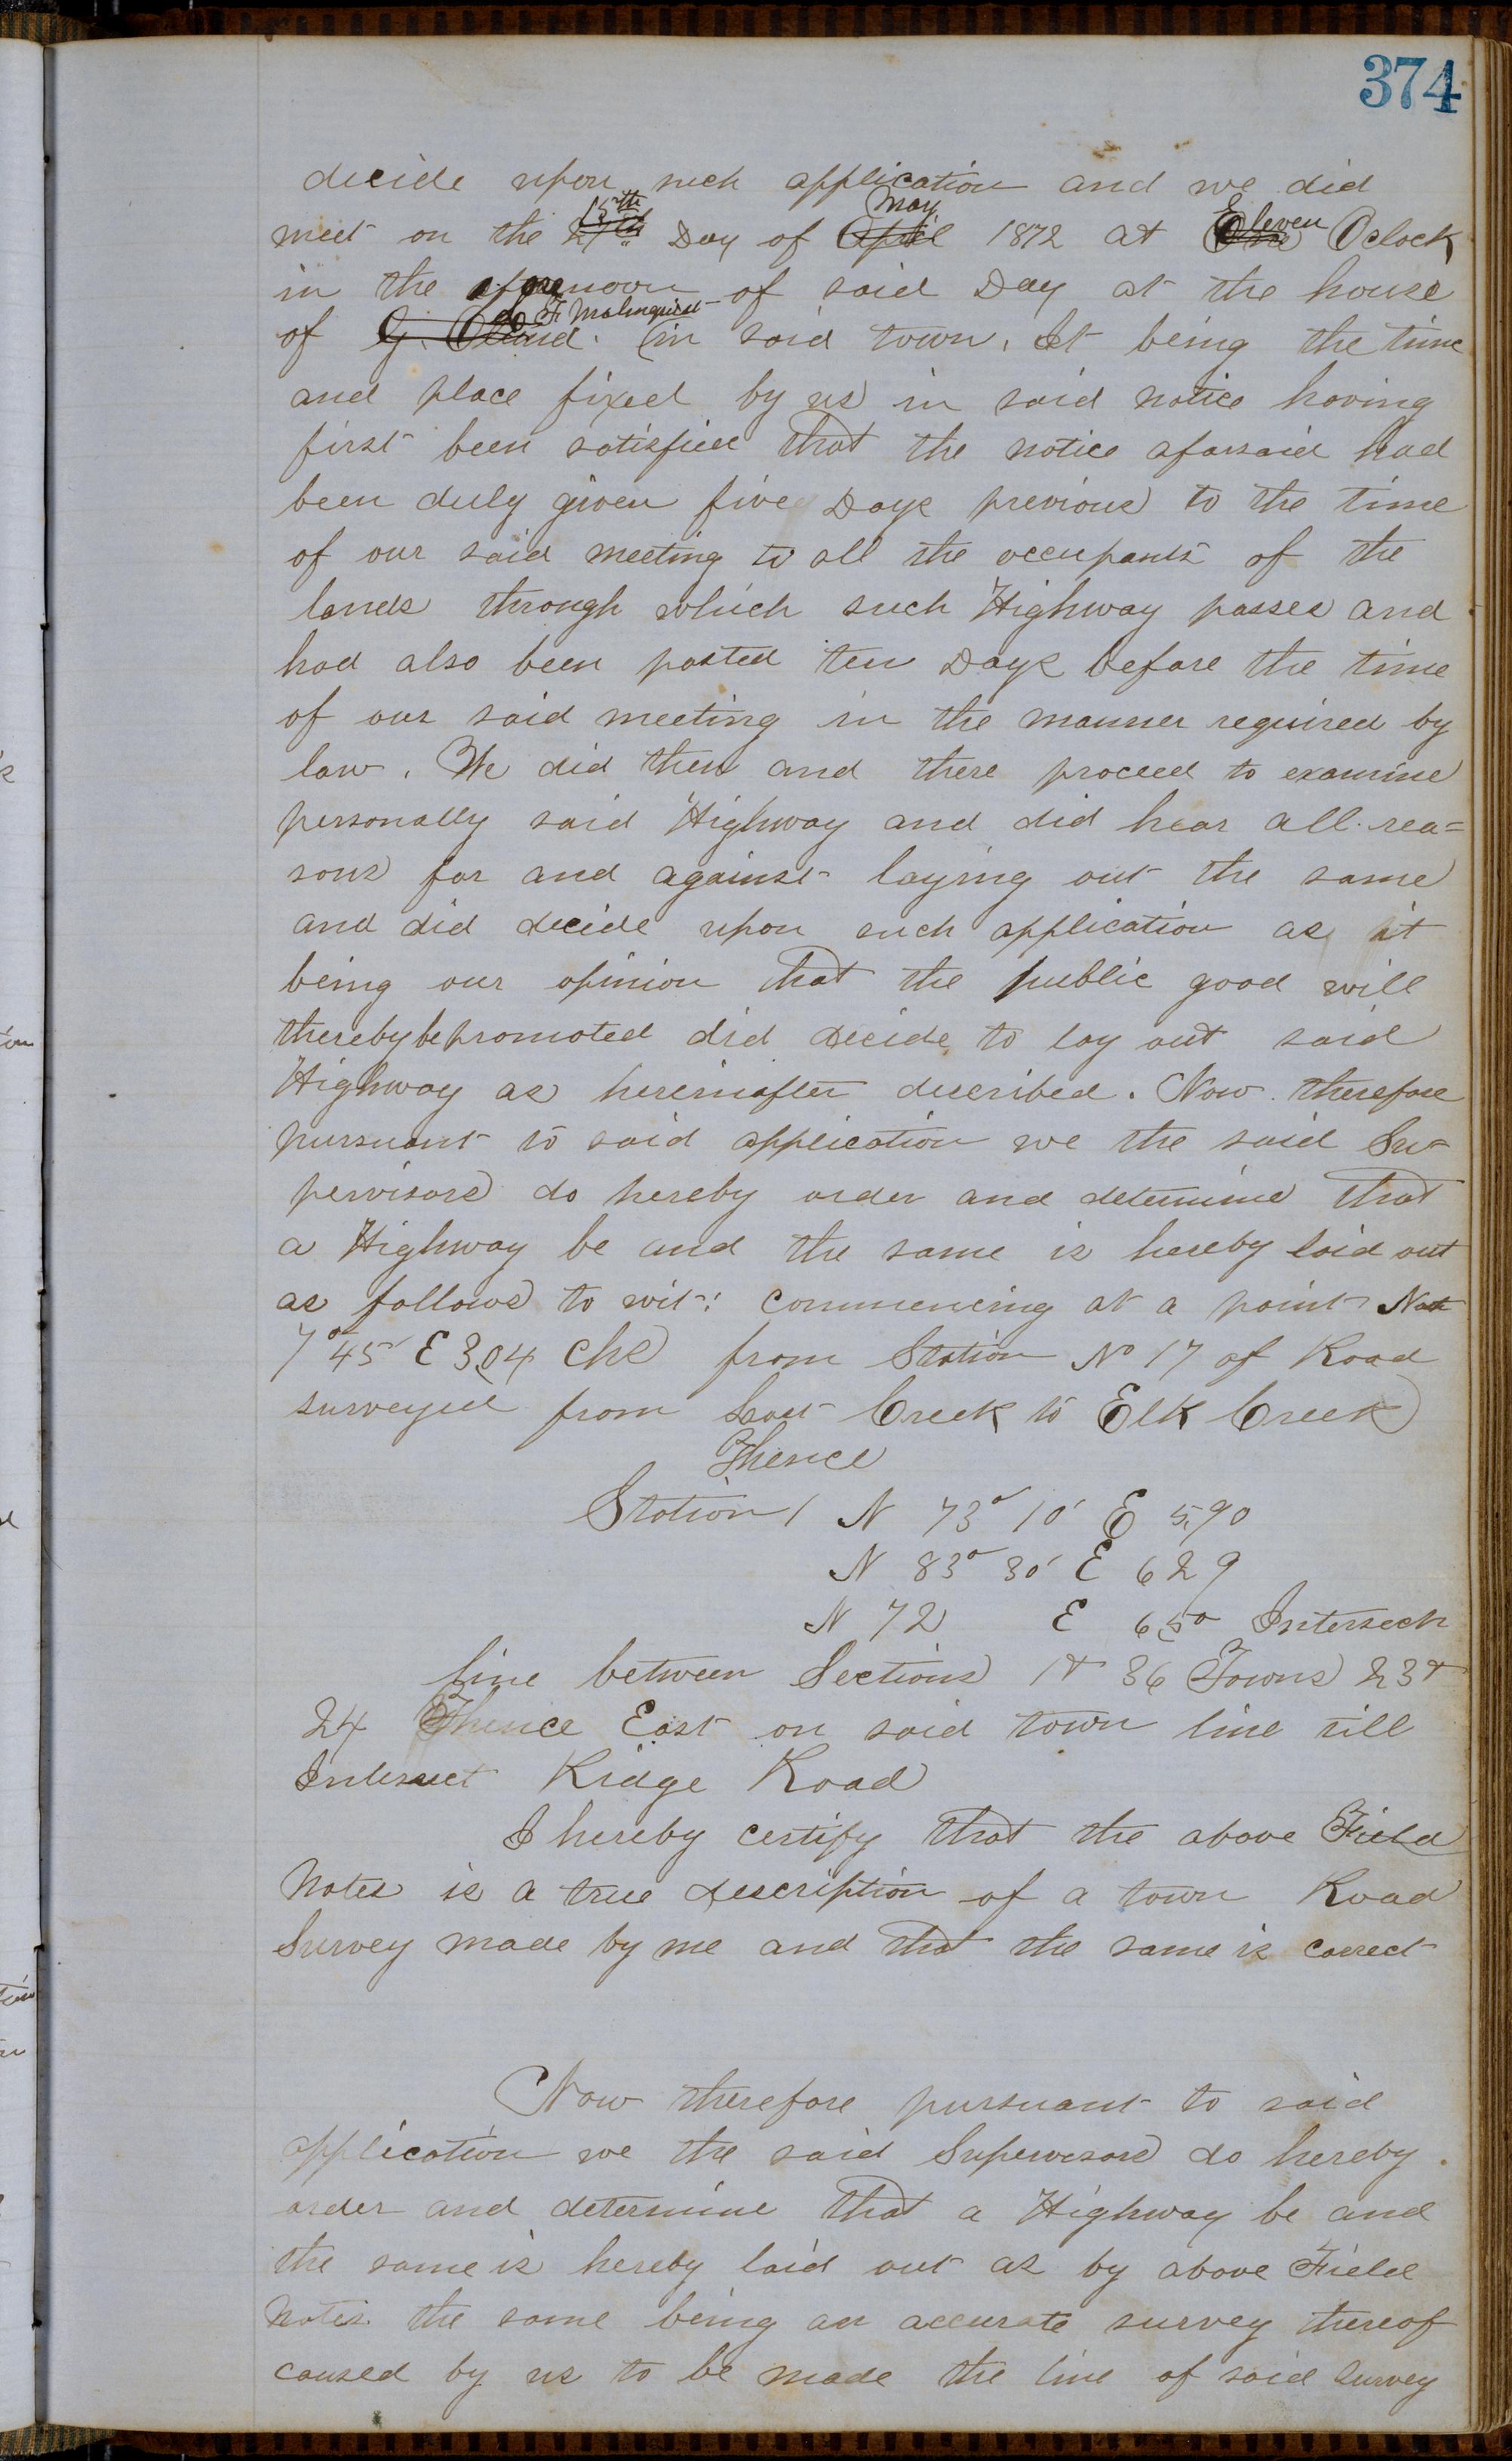 374
decide upon such application and we did
meet on the 13th 27th Day of May April 1872 at Eleven One Oclock
in the forenoon of said Day at the house
of G. F. Malmquist in said town, It being the time
and place fixed by us in said notice having
first been satisfied that the notice aforsaid had
been duly given five Days previous to the time
of our said meeting to all the occupants of the
lands through which such Highway passes and
had also been posted ten Days before the time
of our said meeting in the manner required by
law. We did then and there proceed to examine
personally said Highway and did hear all rea=
sons for and against laying out the same
and did decide upon such application as it
being our opinion that the public good will
thereby be promoted did decide to lay out said
Highway as hereinafter described. Now therefore
pursuant to said application we the said Su-
pervisors do hereby order and determine that
a Highway be and the same is hereby laid out
as follows to wit: commencing at a point North
7° 45' E 3,04 chs from Station No 17 of Road
surveyed from Creek to Elk Creek
Thence
Station 1 N 73° 10' E 5,90
N 83° 30' E 6 29
N 72 E 6,50 Intersect
line between Sections 1 & 36 Towns 23 &
24 Thence East on said town line till
Intersect Ridge Road
I hereby certify that the above Field
Notes is a true description of a town Road
Survey made by me and that the same is correct
Now therefore pursuant to said
application we the said Supervisors do hereby
order and determine that a Highway be and
the same is hereby laid out as by above Field
Notes the same being an accurate survey thereof
caused by us to be made the line of said Survey